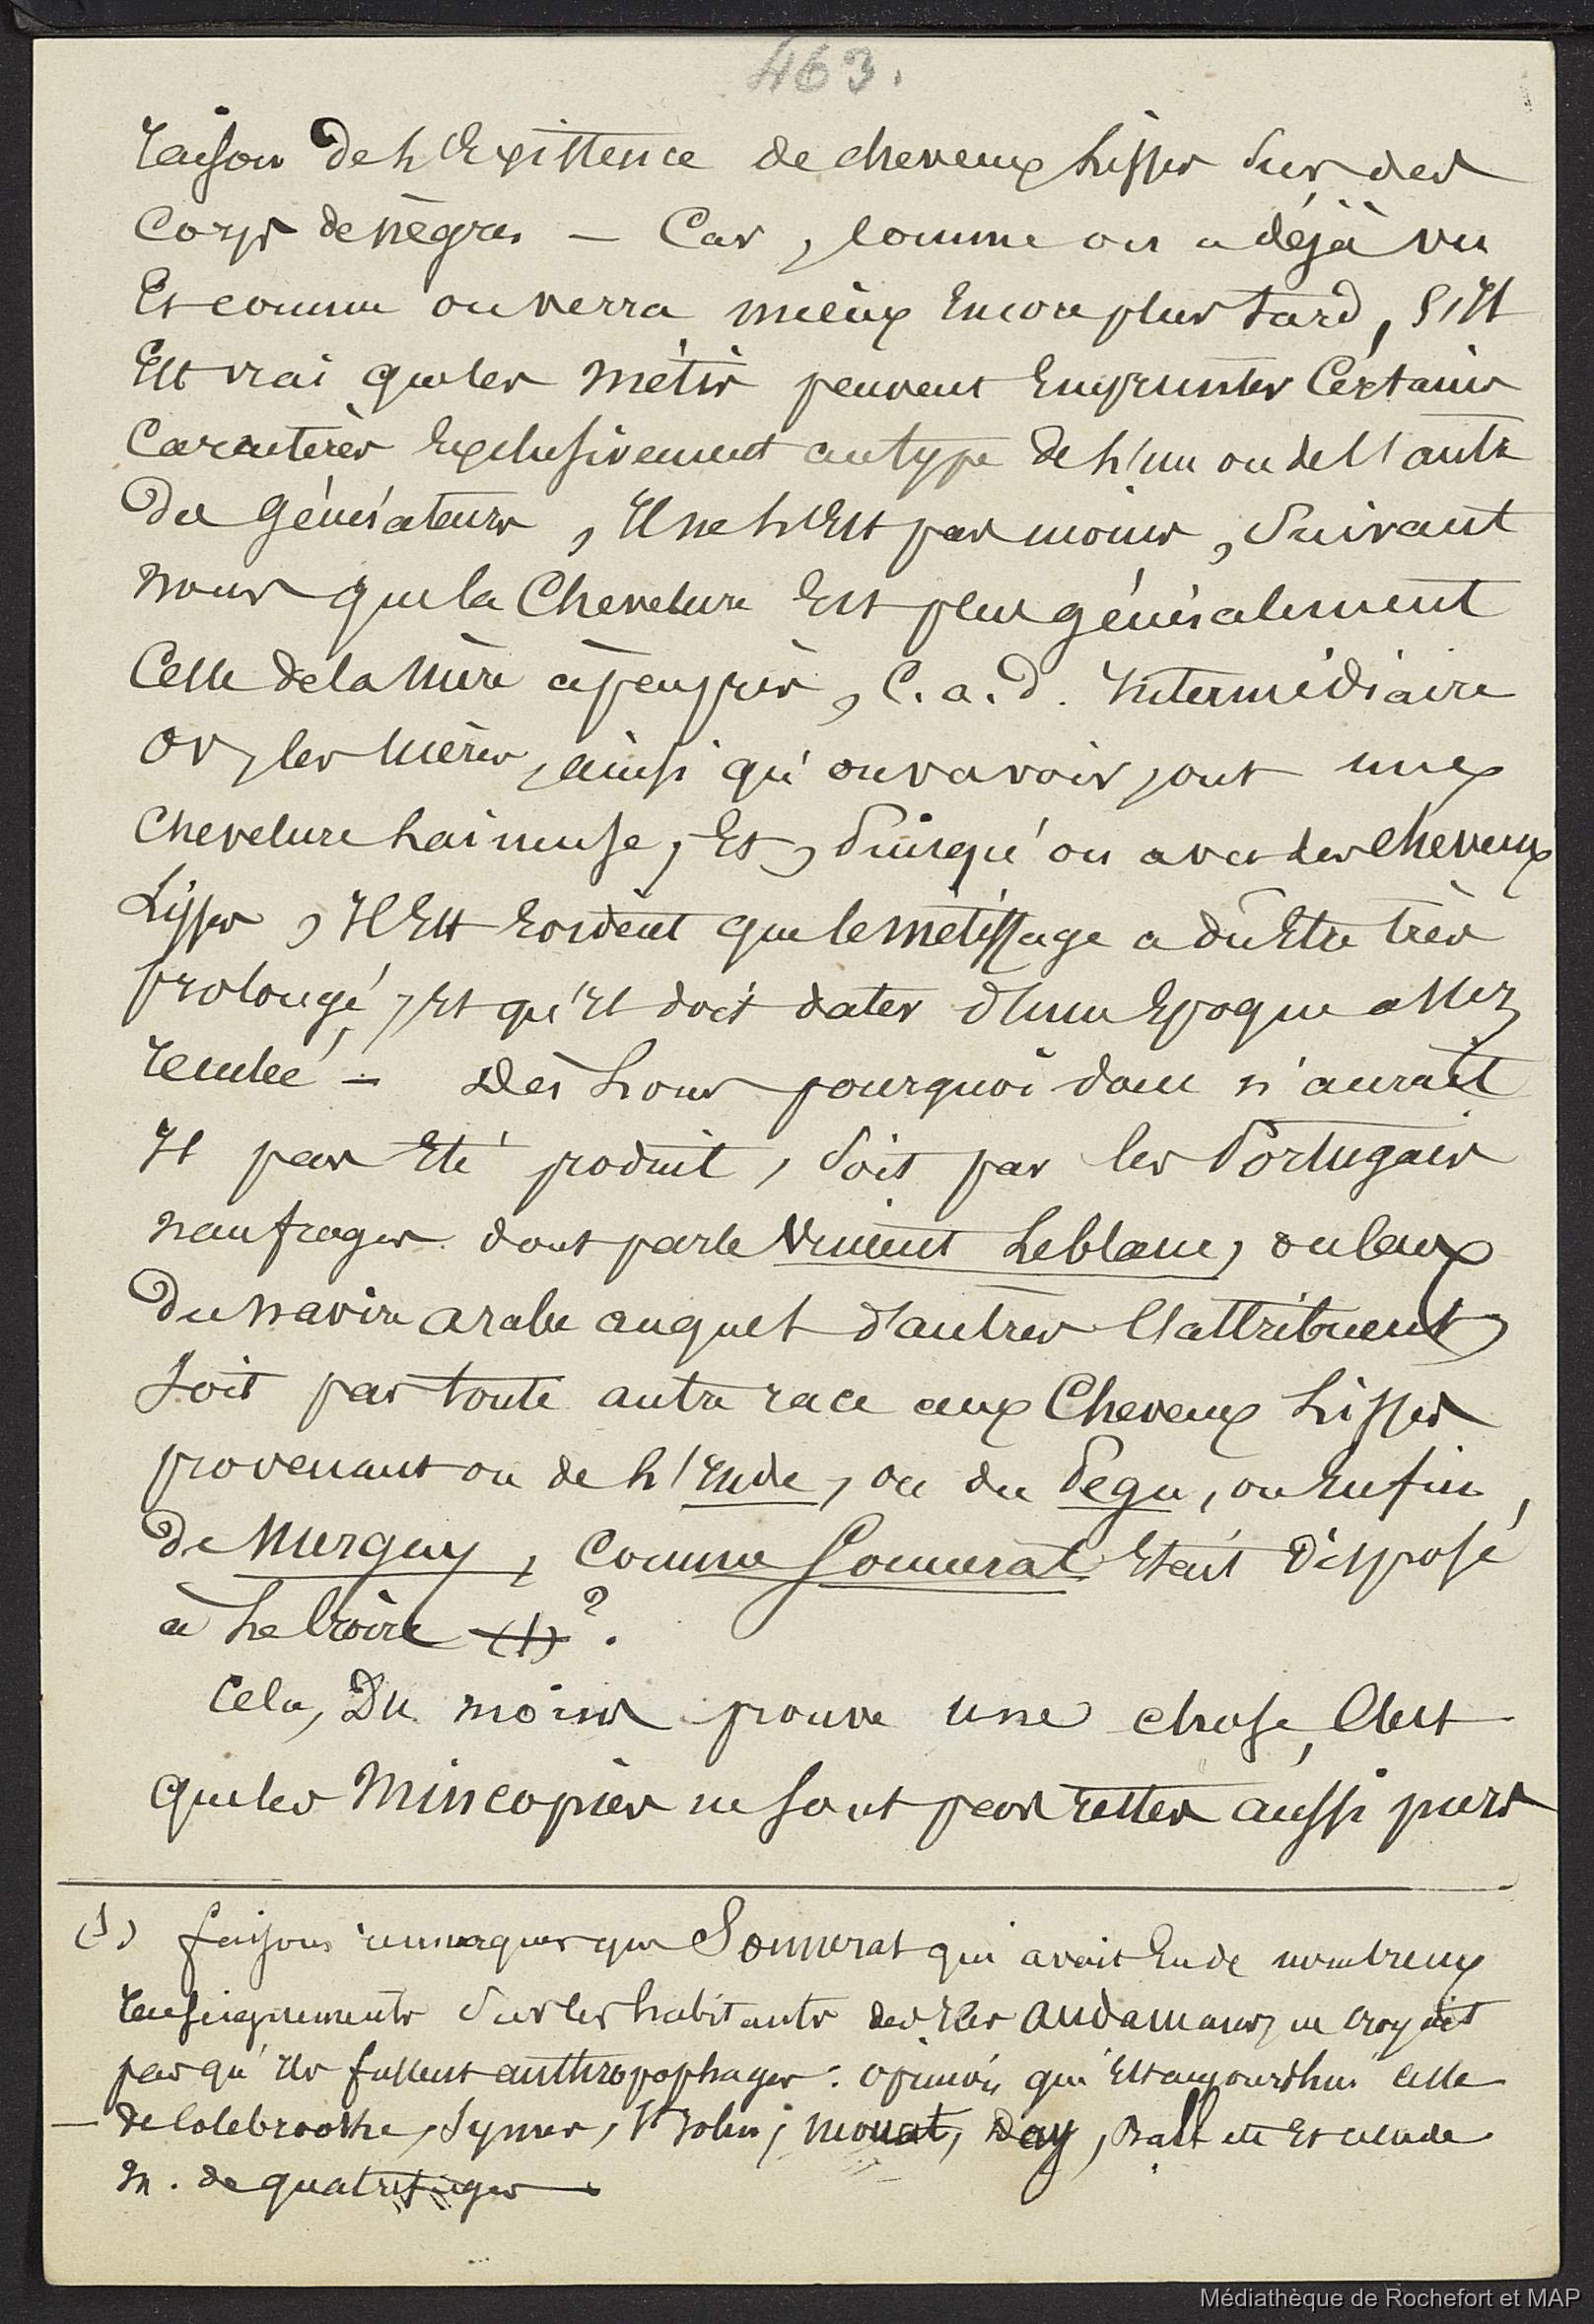 463.
raison de l'Existence de cheveux lisses sur des
Corps de nègres — Car, comme on a déjà vu
Et comme on verra mieux Encore plus tard, s'il
Est vrai que les métis peuvent Emprunter Certains
Caractères Exclusivement au type de l'un ou de l'autre
des Générateurs, Il ne l'Est pas moins, suivant
nous que la Chevelure Est plus généralement
Celle de la mère à peu près, C. a. d. Intermédiaire
Or, les mères, ainsi qu'on va voir, ont une
Chevelure laineuse, Et, puisqu'on a vu des cheveux
Lisses, Il Est Evident que le métissage a dû Etre très
prolongé, Et qu'il doit dater d'une Epoque assez
reculée — Dès lors pourquoi donc n'aurait
Il pas Eté produit, soit par les Portugais
naufragés dont parle Vincent Leblanc, ou ceux
Du navire arabe auquel d'autres l'attribuent,
soit par toute autre race aux Cheveux lisses
provenant ou de l'Inde, ou du Pegu, ou Enfin,
De Merguy, Comme Sonnerat Etait disposé
à le Croire (1) ?.
Cela, Du moins prouve une chose, C'est
que les Mincopies ne sont pas restés aussi purs
(1) faisons remarquer que Sonnerat qui avait Eu de nombreux
renseignements sur les habitants des Iles Andamans, ne croyait
pas qu'ils fussent anthropophages : opinion qui Est aujourd'hui celle
— de Colebrooke, Symes, St John, Mouat, Day, Ball etc Et celle de
M. de quatrefages.
Médiathèque de Rochefort et MAP